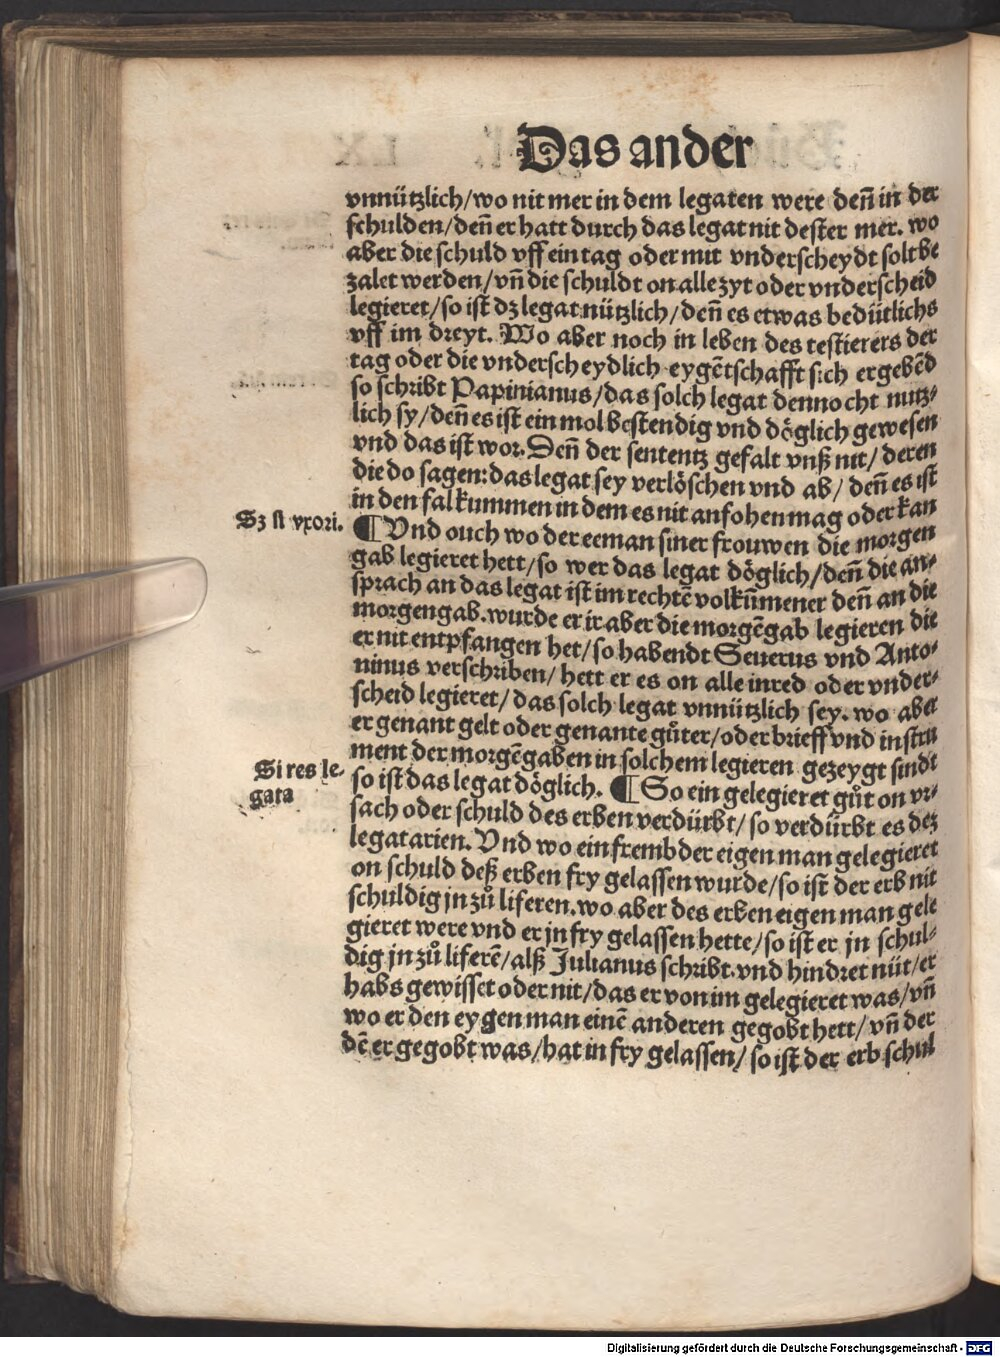 Das ander
vnnützlich/wo nit mer in dem legaten were deñ in der
schulden/deñ er hatt durch das legat nit dester mer. wo
aber die schuld vff ein tag oder mit vnderscheydt solt be
zalet werden/vñ die schuldt on alle zyt oder vnderscheid
legieret/so ist dz legat nützlich/deñ es etwas bedütlichs
vff im dreyt. Wo aber noch in leben des testierers der
tag oder die vnderscheydlich eygẽtschafft sich ergebẽd
so schribt Papinianus/das solch legat dennocht nutz⸗
lich sy/deñ es ist ein mol bestendig vnd döglich gewesen
vnd das ist wor. Deñ der sententz gefalt vnß nit/deren
die do sagen:das legat sey verlöschen vnd ab/deñ es ist
in den fal kummen in dem es nit anfohen mag oder kan
Sz si vxori.
¶ Vnd ouch wo der eeman siner frouwen die morgen
gab legieret hett/so wer das legat döglich/deñ die an⸗
sprach an das legat ist im rechtẽ volkũmener deñ an die
morgengab. wurde er ir aber die morgẽgab legieren die
er nit entpfangen het/so habendt Seuerus vnd Anto⸗
ninus verschriben/hett er es on alle inred oder vnder⸗
scheid legieret/das solch legat vnnützlich sey. wo aber
er genant gelt oder genante gůter/oder brieff vnd instru
ment der morgẽgaben in solchem legieren gezeygt sindt
Si res le⸗
gata
so ist das legat döglich. ¶ So ein gelegieret gůt on vr⸗
sach oder schuld des erben verdürbt/so verdürbt es dez
legatarien. Vnd wo ein frembder eigen man gelegieret
on schuld deß erben fry gelassen wurde/so ist der erb nit
schuldig jn zů liferen. wo aber des erben eigen man gele
gieret were vnd er jn fry gelassen hette/so ist er jn schul⸗
dig jn zů liferẽ/alß Julianus schribt. vnd hindret nüt/er
habs gewisset oder nit/das er von im gelegieret was/vñ
wo er den eygen man einẽ anderen gegobt hett/vñ der
dẽ er gegobt was/hat in fry gelassen/so ist der erb schul
Digitalisierung gefördert durch die Deutsche Forschungsgemeinschaft - DFG